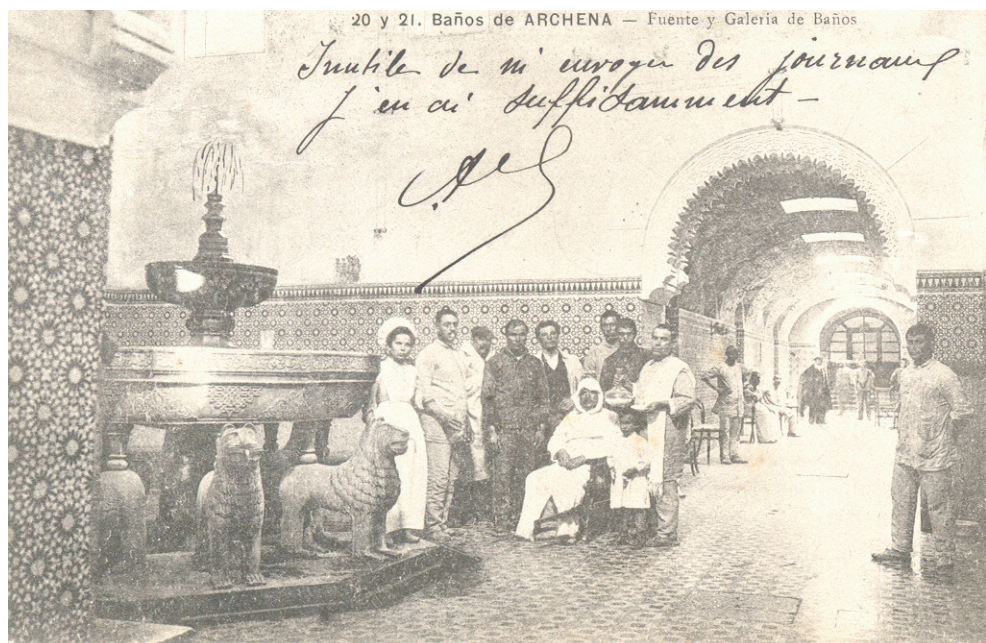 20 y 21. Baños de ARCHENA — Fuente y Galeria de Baños
Inutile de m envoyer des journaux
J'en ai suffisamment —